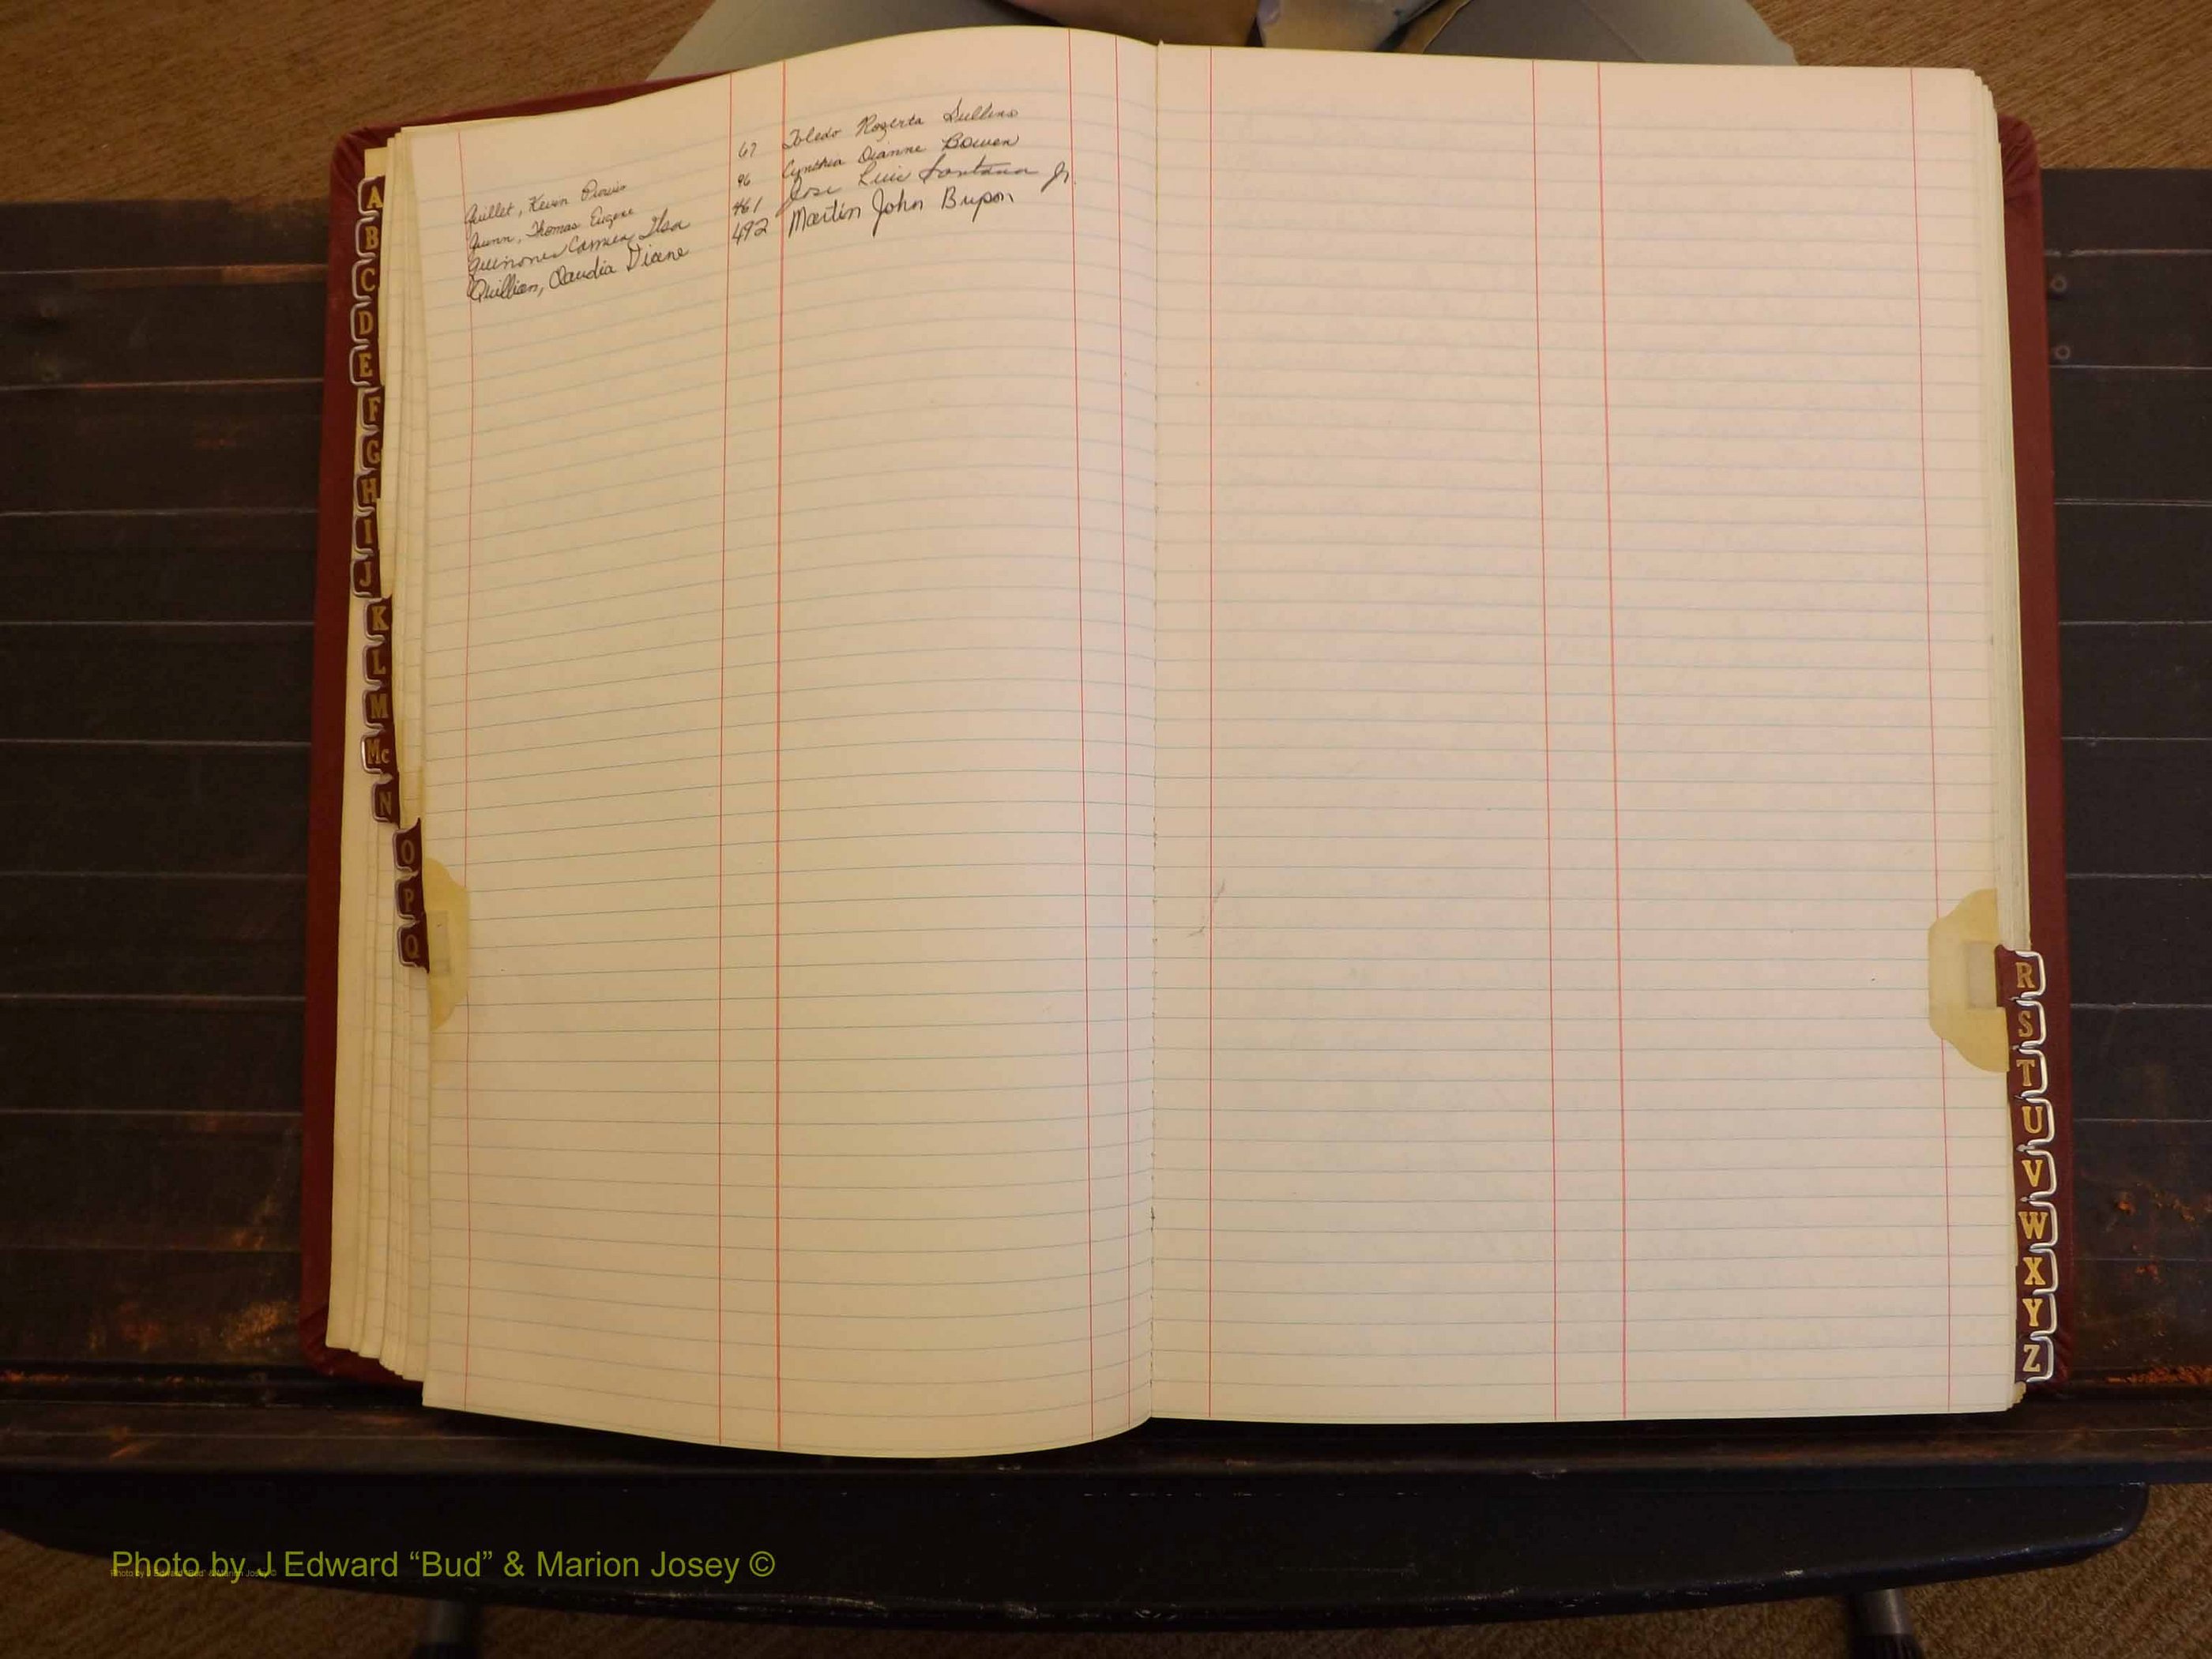 Quillet, Kevin 67 Toledo Rogerta Sullins
Quinn, Thomas Eugene 96 Cynthia Dianne Bowen
Quinones Carmen Ilsa 461 Jose Luis Santana Jr.
Quillian, Claudia Diane 492 Martin John Bupon
A
B
C
D
E
F
G
H
I
J
K
L
M
Mc
N
O
P
Q
R
S
T
U
V
W
X
Y
Z
Photo by J Edward “Bud” & Marion Josey ©
Photo by J Edward "Bud" & Marion Josey ©